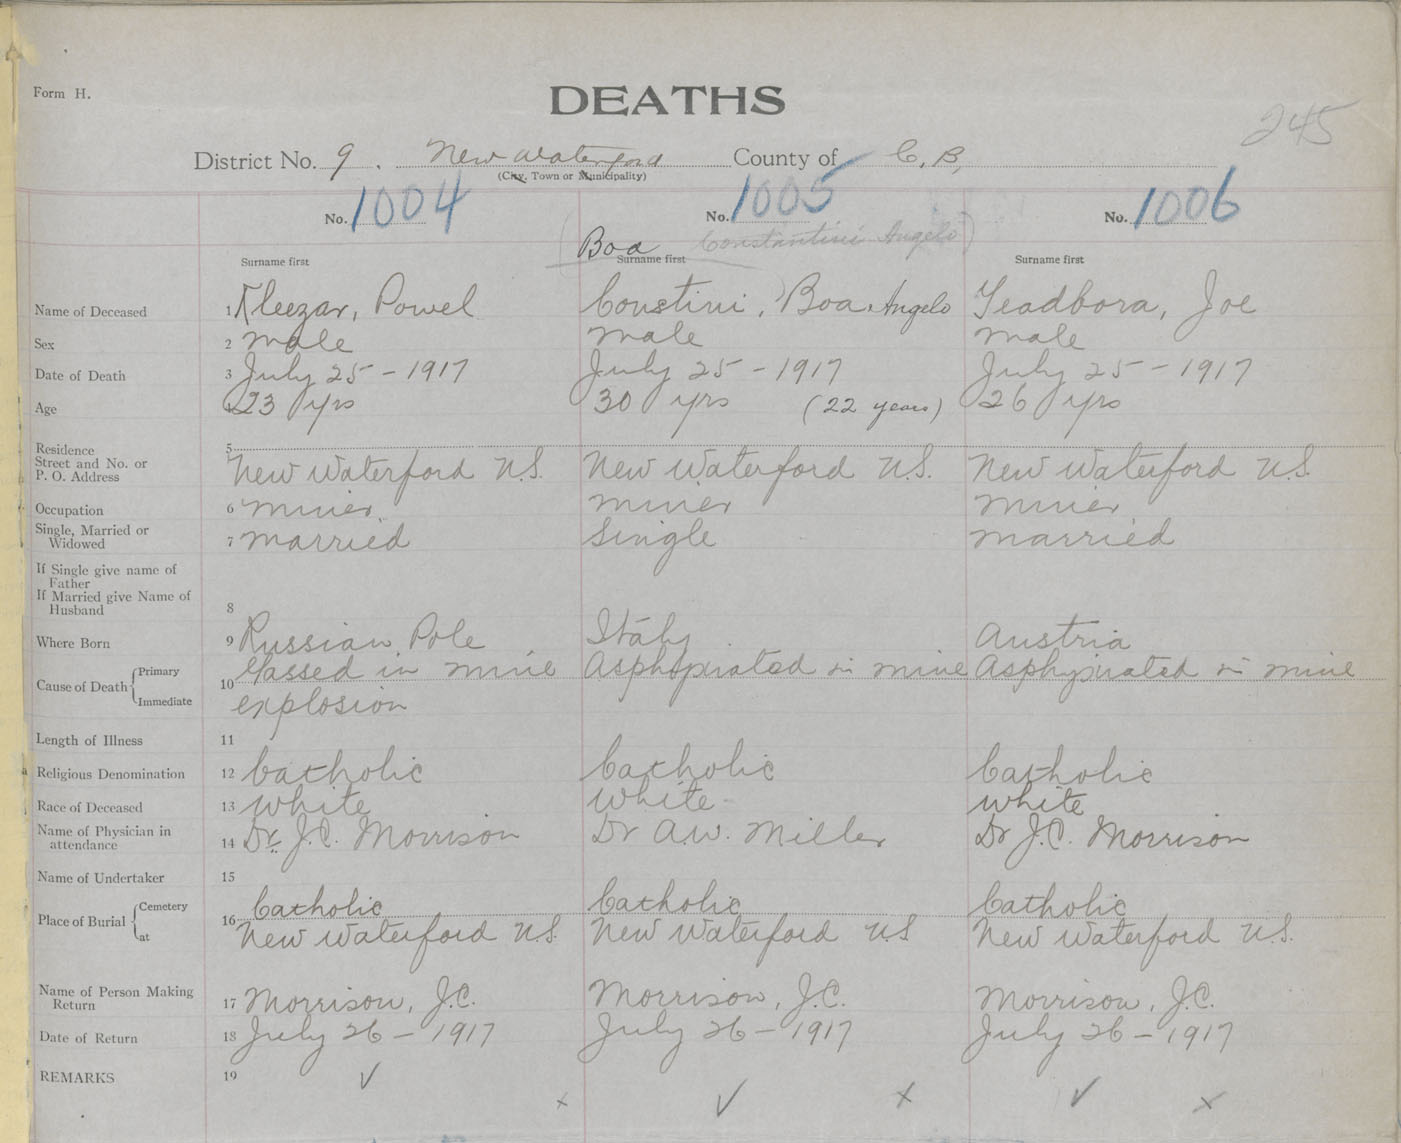 Form H.
DEATHS
245
District No. 9. New Waterford County of C. B.
(City, Town or Municipality)
No. 1004 No. 1005 No. 1006
(Boa Constantini Angelo)
Surname first Surname first Surname first
Name of Deceased 1 Kleezar, Powel Coustini, Boa, Angelo Yeadbora, Joe
Sex 2 male male male
Date of Death 3 July 25 - 1917 July 25 - 1917 July 25 - 1917
Age 4 23 yrs 30 yrs (22 years) 26 yrs
Residence 5
Street and No. or
P. O. Address New Waterford N.S. New Waterford N.S. New Waterford N.S.
Occupation 6 miner miner miner
Single, Married or
Widowed 7 married single married
If Single give name of
Father
If Married give Name of
Husband 8
Where Born 9 Russian Pole Italy Austria
Cause of Death Primary 10 Gassed in mine Asphyxiated in mine Asphyxiated in mine
Immediate explosion
Length of Illness 11
Religious Denomination 12 Catholic Catholic Catholic
Race of Deceased 13 white white white
Name of Physician in
attendance 14 Dr. J.C. Morrison Dr A.W. Miller Dr J.C. Morrison
Name of Undertaker 15
Place of Burial Cemetery 16 Catholic Catholic Catholic
at New Waterford N.S. New Waterford N.S New Waterford N.S.
Name of Person Making
Return 17 Morrison, J.C. Morrison, J.C. Morrison, J.C.
Date of Return 18 July 26 - 1917 July 26 - 1917 July 26 - 1917
REMARKS 19 ✓ x ✓ x ✓ x